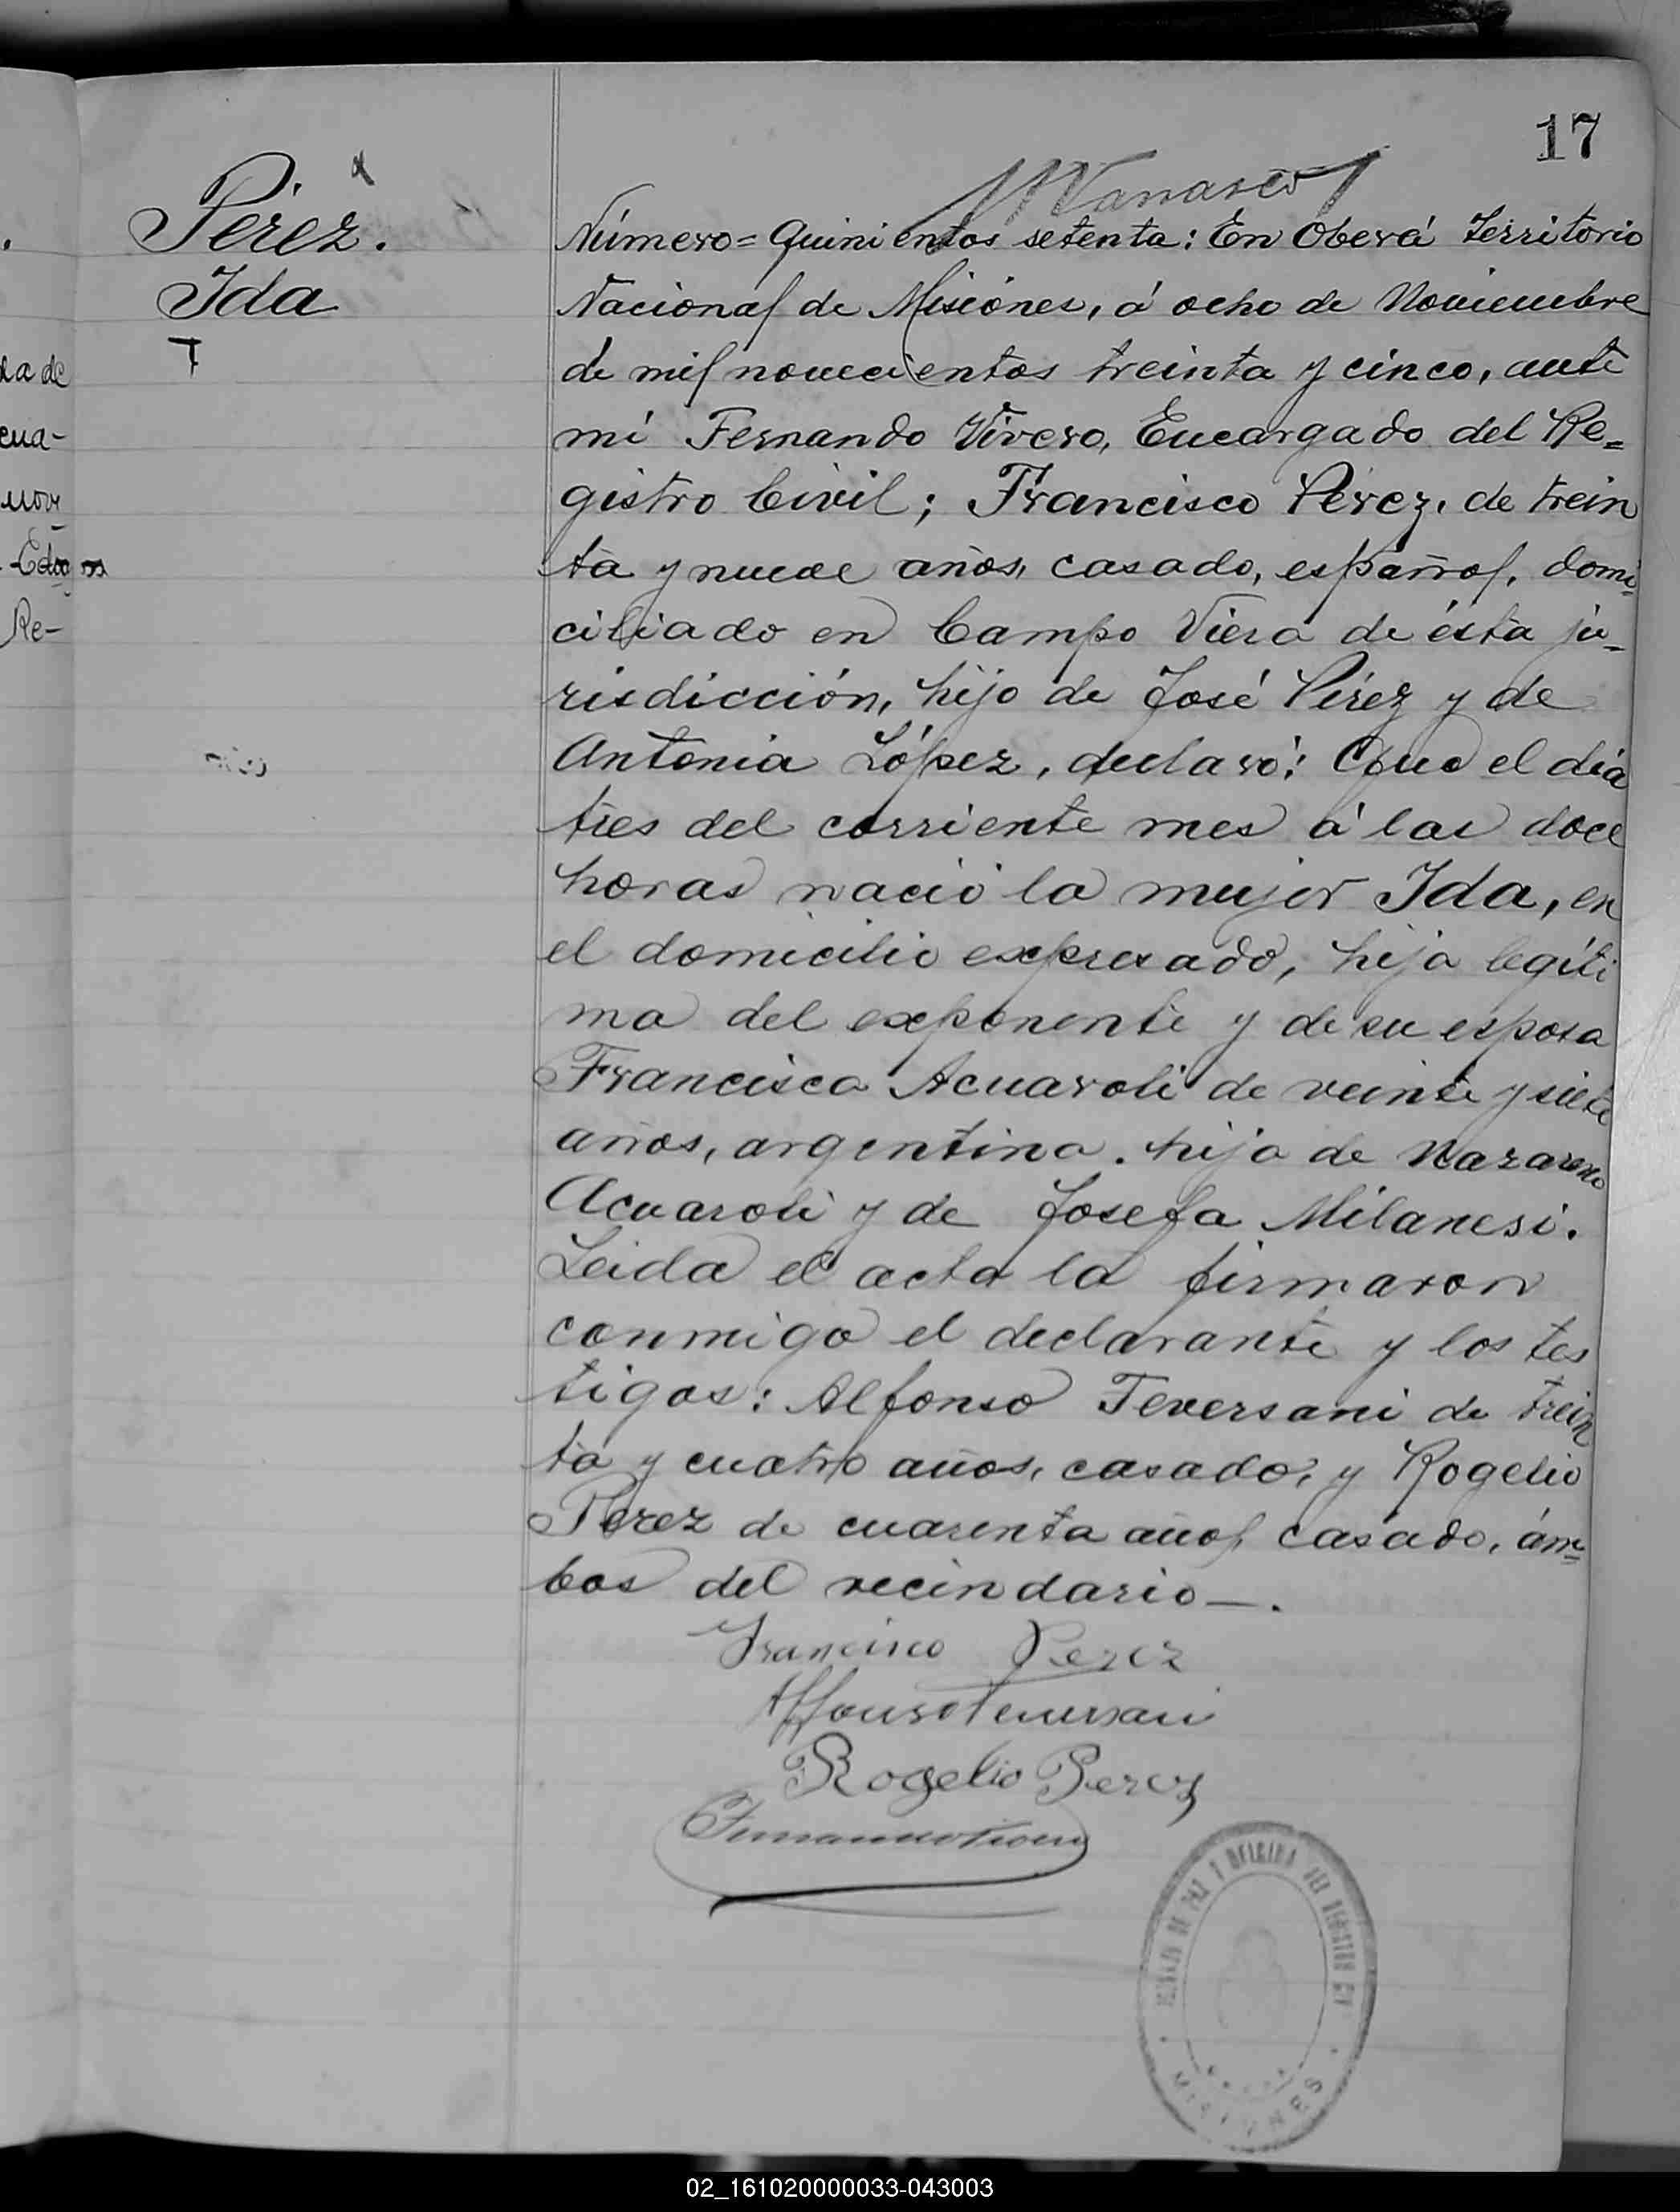 17
Pérez.
Ida
T
Número = Quinientos setenta: En Oberá Territorio
Nacional de Misiónes, á ocho de Noviembre
de mil novecientos treinta y cinco, ante
mí Fernando Vivero, Encargado del Re=
gistro Civil; Francisco Pérez, de trein
ta y nueve años, casado, español, domi
ciliado en Campo Viera de ésta ju-
risdicción, hijo de José Pérez y de
Antonia López, declaró: Que el día
tres del corriente mes á las doce
horas nació la mujer Ida, en
el domicilio expresado, hija legíti
ma del exponente y de su esposa
Francisca Acuaroli de veinte y siete
años, argentina. hija de Nazareno
Acuaroli y de Josefa Milanesi.
Leida el acta la firmaron
conmigo el declarante y los tes
tigos: Alfonso Teversani de trein
ta y cuatro años, casado, y Rogelio
Perez de cuarenta años, casado, ám=
bos del vecindario—.
Francisco Perez
Alfonso Teversani
Rogelio Perez
MISIONES
da de
cua-
Re-
02_161020000033-043003